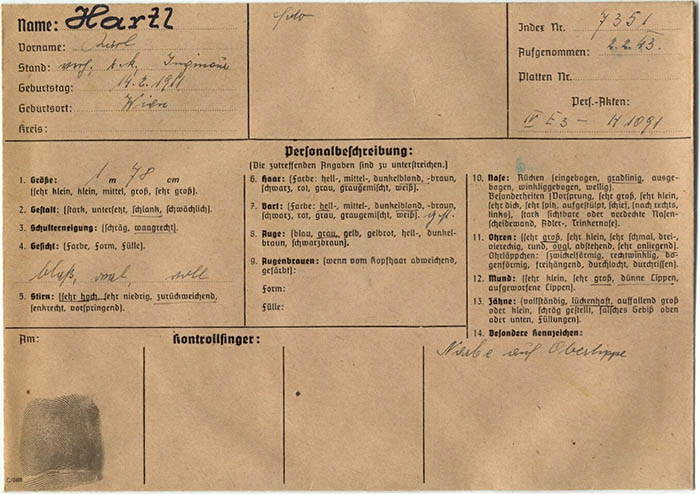 Name: Hartl
Vorname: Karl
Stand: verh. k.k. Ingenieur
Geburtstag: 14.2.1911
Geburtsort: Wien
Kreis:
Index Nr. 7351
Aufgenommen: 2.2.43.
Platten Nr.
Pers.-Akten:
IV E3 - H 1091
Personalbeschreibung:
(Die zutreffenden Angaben sind zu unterstreichen.)
1. Größe: 1 m 78 cm
(sehr klein, klein, mittel, groß, sehr groß).
2. Gestalt: (stark, untersetzt, schlank, schwächlich).
3. Schulterneigung: (schräg, waagrecht).
4. Gesicht: (Farbe, Form, Fülle).
blaß, oval, voll
5. Stirn: (sehr hoch, sehr niedrig, zurückweichend, senkrecht, vorspringend).
6. Haar: (Farbe: hell-, mittel-, dunkelblond, -braun,
schwarz, rot, grau, graugemischt, weiß).
7. Bart: (Farbe: hell-, mittel-, dunkelblond, -braun,
schwarz, rot, grau, graugemischt, weiß).
8. Auge: (blau, grau, gelb, gelbrot, hell-, dunkel-
braun, schwarzbraun).
9. Augenbrauen: (wenn vom Kopfhaar abweichend,
gefärbt):
Form:
Fülle:
10. Nase: Rücken (eingebogen, gradlinig, ausge-
bogen, winkliggebogen, wellig).
Besonderheiten (Vorsprung, sehr groß, sehr klein,
sehr dick, sehr spitz, aufgestülpt, schief, (nach rechts,
links), stark sichtbare oder verdeckte Nasen-
scheidewand, Adler-, Trinkernase).
11. Ohren: (sehr groß, sehr klein, sehr schmal, drei-,
viereckig, rund, oval, abstehend, sehr anliegend).
Ohrläppchen: (zwickelförmig, rechtwinklig, bo-
genförmig, freihängend, durchlocht, durchrissen).
12. Mund: (sehr klein, sehr groß, dünne Lippen,
aufgeworfene Lippen).
13. Zähne: (vollständig, lückenhaft, auffallend groß
oder klein, schräg gestellt, falsches Gebiß oben
oder unten, Füllungen).
14. Besondere Kennzeichen:
Narbe auf Oberlippe
Am:
Kontrollfinger: